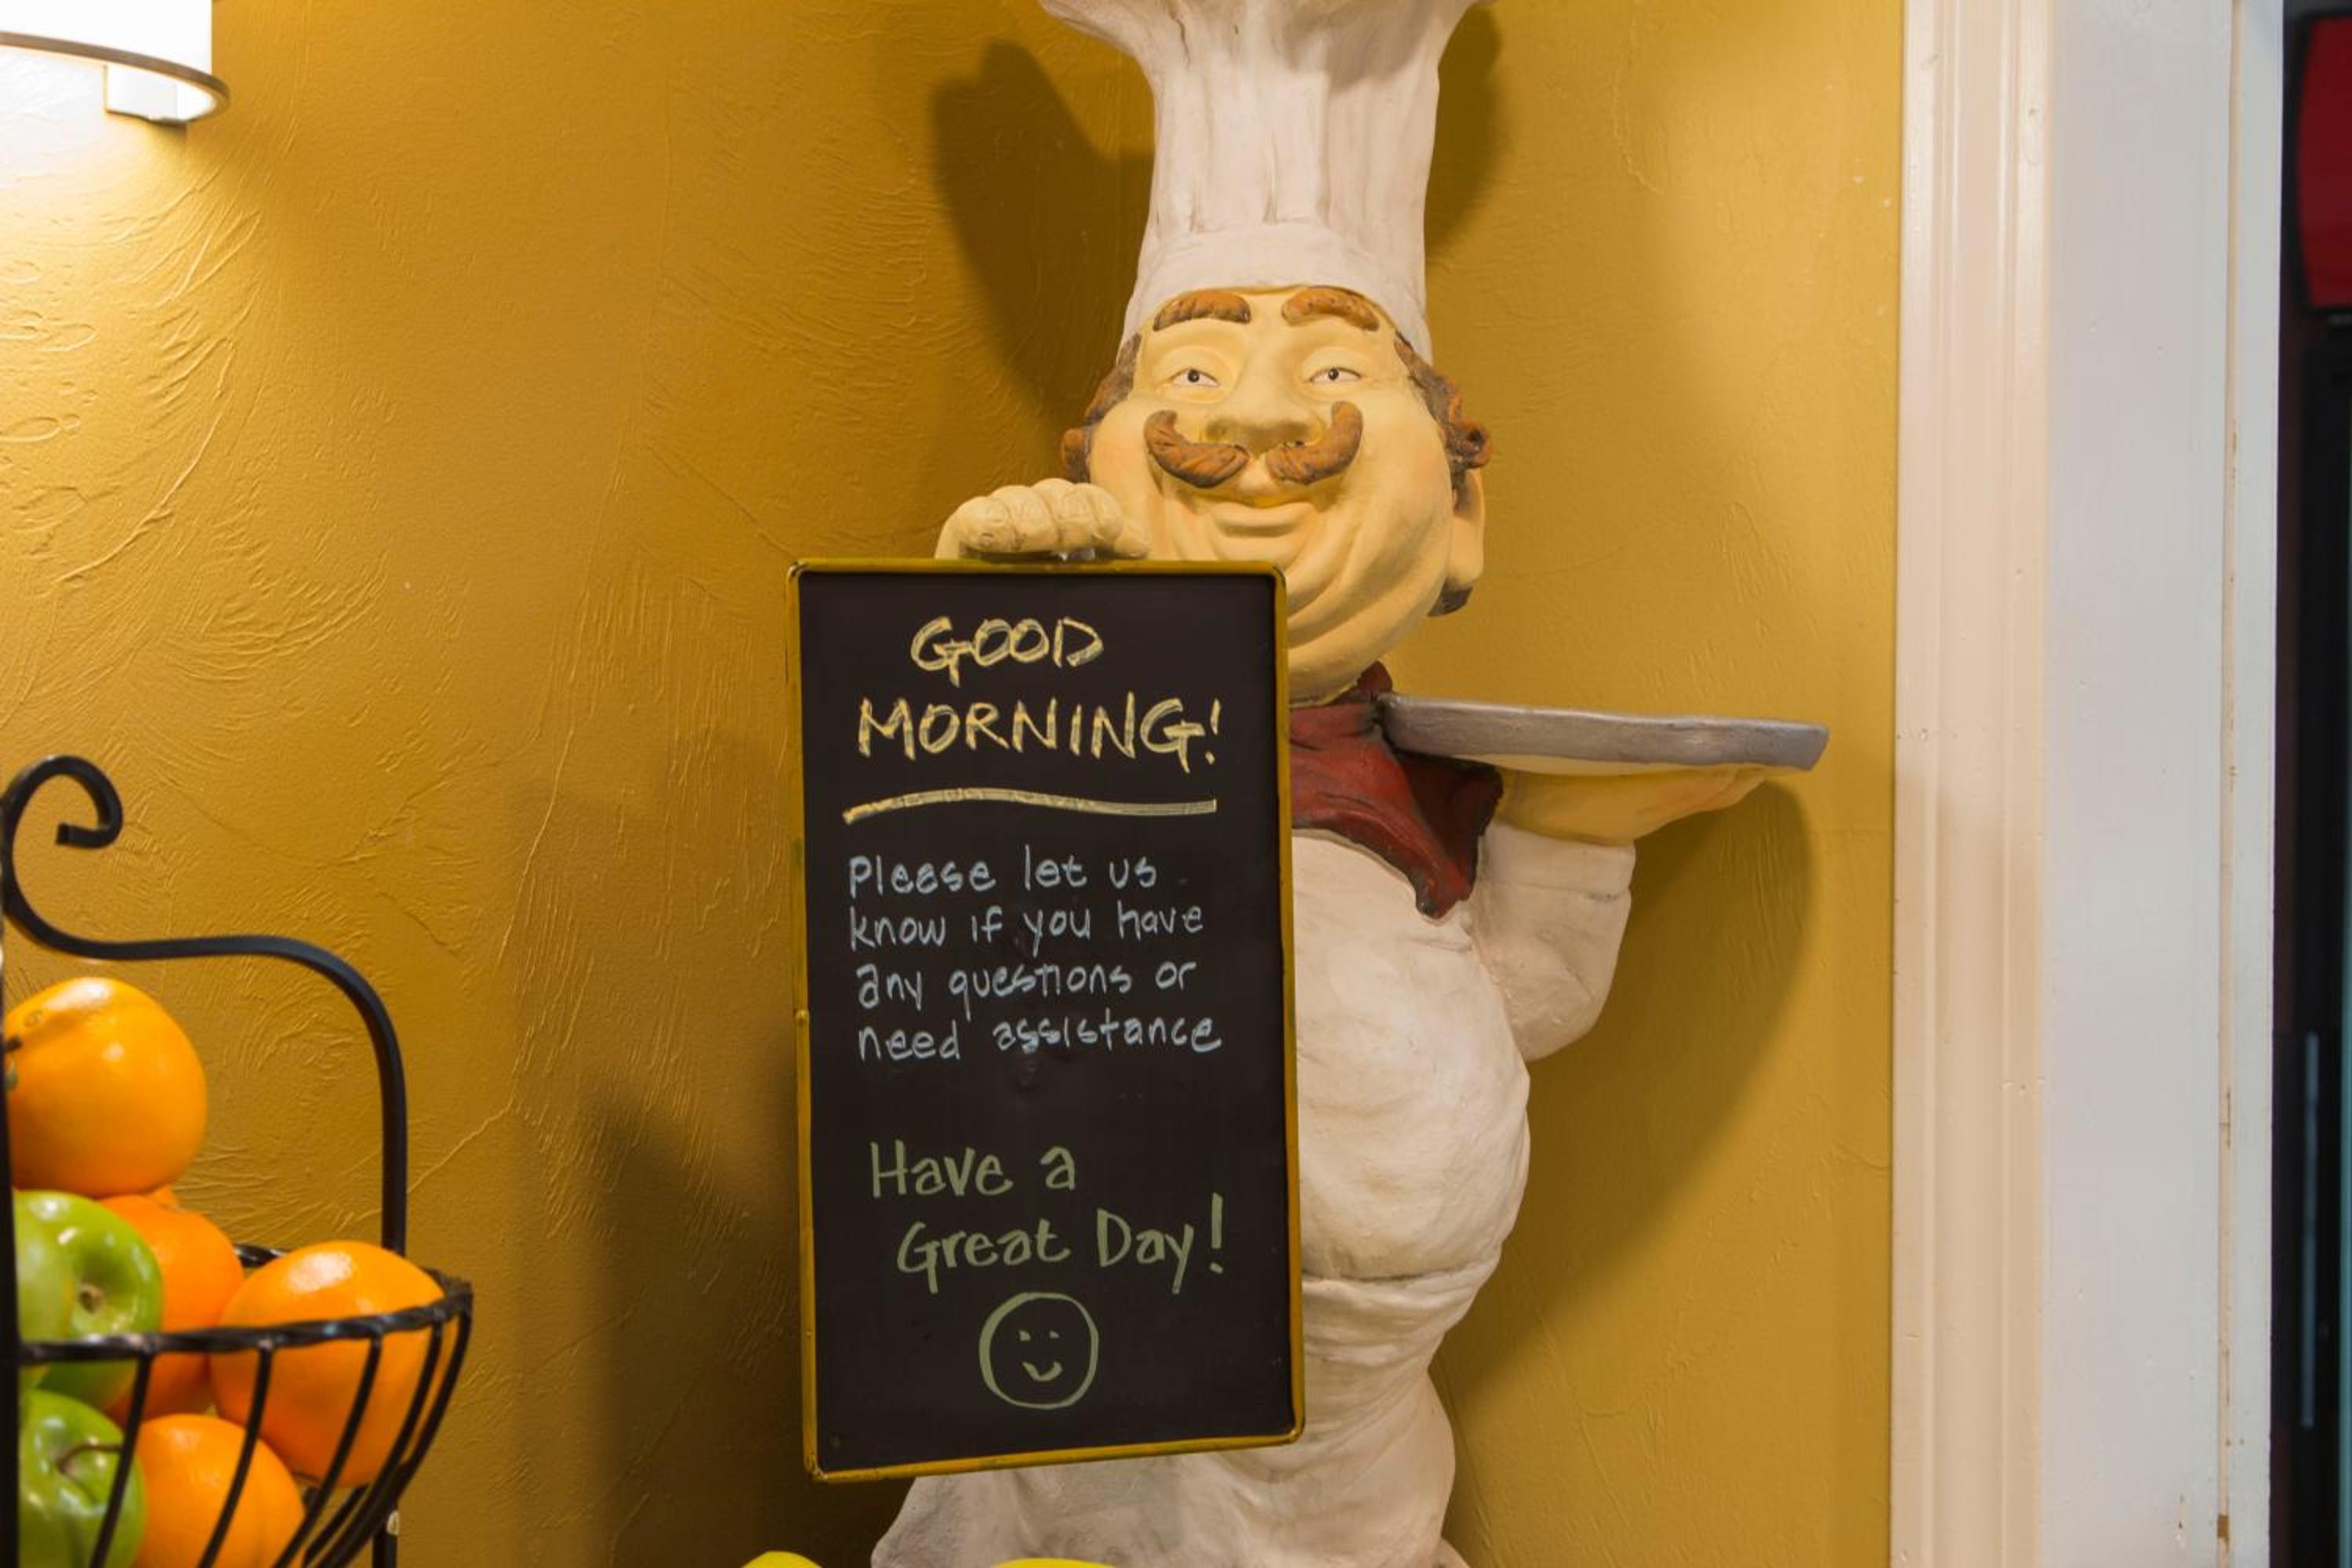 GOOD
MORNING!
Please let us
know if you have
any questions or
need assistance
Have a
Great Day!